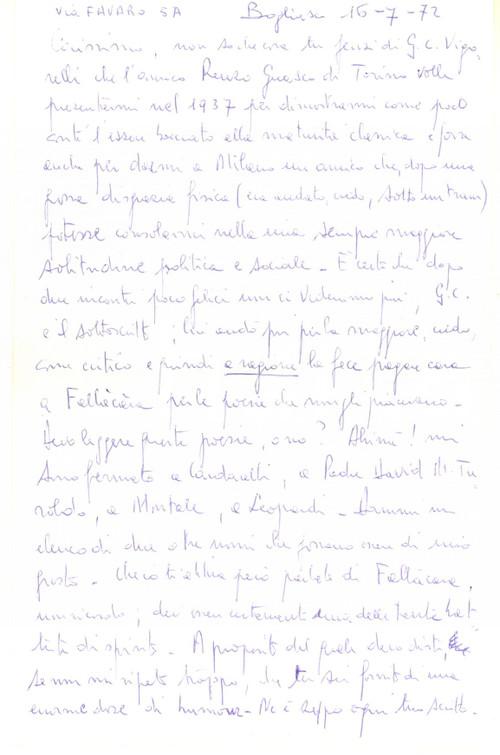 Via FAVARO 5A Bogliasco 16-7-72
Carissimo, non so che cosa tu pensi di G.C. Vigo
relli che l'amico Renzo Guasco di Torino volle
presentarmi nel 1937 per dimostrarmi come poco
conti l'essere bocciato alla maturità classica e forse
anche per darmi a Milano un amico che, dopo una
grossa disgrazia fisica (era andato, credo, sotto un tram)
potesse consolarmi nella mia sempre maggiore
solitudine politica e sociale - È certo che dopo
due incontri poco felici non ci vedemmo più, G.C.
e il sottoscritt ; lui andò poi per la maggiore, credo,
come critico e quindi a ragione la fece pagare cara
a Fallàcara per le poesie che non gli piacevano -
Devo leggere queste poesie, o no? Ahimè! mi
sono fermato a Cardarelli, a Padre David M. Tu
roldo, a Montale, a Leopardi - Dammi un
elenco di due o tre nomi che possano essere di mio
gusto - Che io ti abbia però parlato di Fallàcara,
non ricordo; dev'essere certamente una delle tante bat
tute di spirito - A proposito del quale devo dirti,
se non mi ripeto troppo, che tu sei fornito di una
enorme dose di humour - Ne è zeppo ogni tuo scritto -